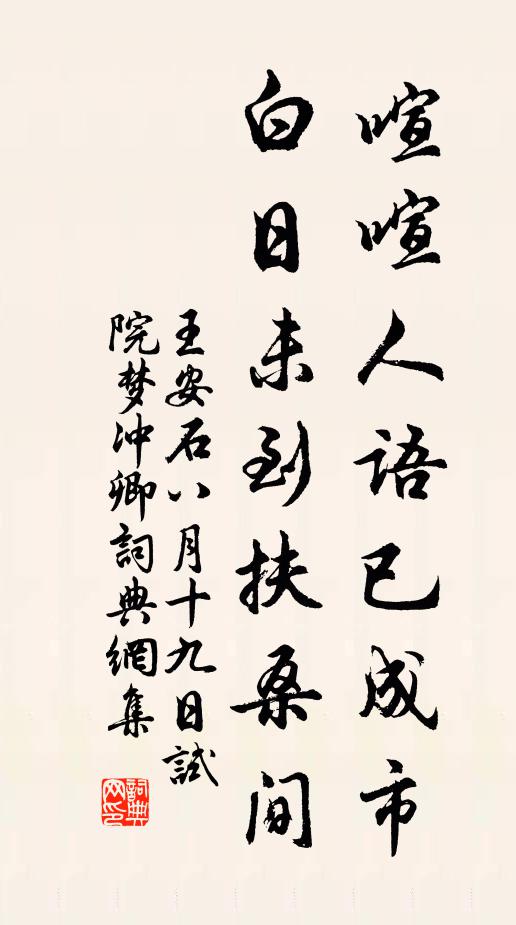 喧喧人語已成市
白日未到扶桑間
王安石八月十九日試
院梦冲卿詞典網集
詞典
网印